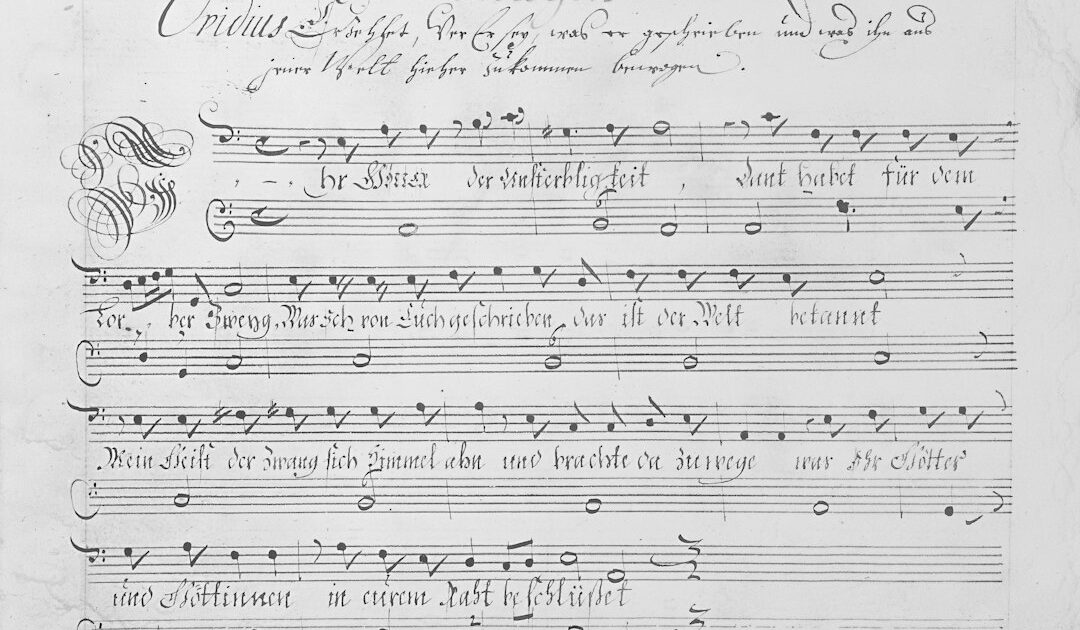 Ovidius Erzehlet, Wer Er sey, was er geschrieben und was ihn aus
jener Welt hieher zukommen bewogen.
Ihr Götter der Unsterbligkeit, Dant habet für dem
Lor-ber Zweyg, Was Ich von Euch geschrieben, das ist der Welt bekannt
Mein Geist der zwang sich Himmel ahn und brachte da zuwege was Ihr Götter
und Göttinnen in eurem Raht beschlüßet